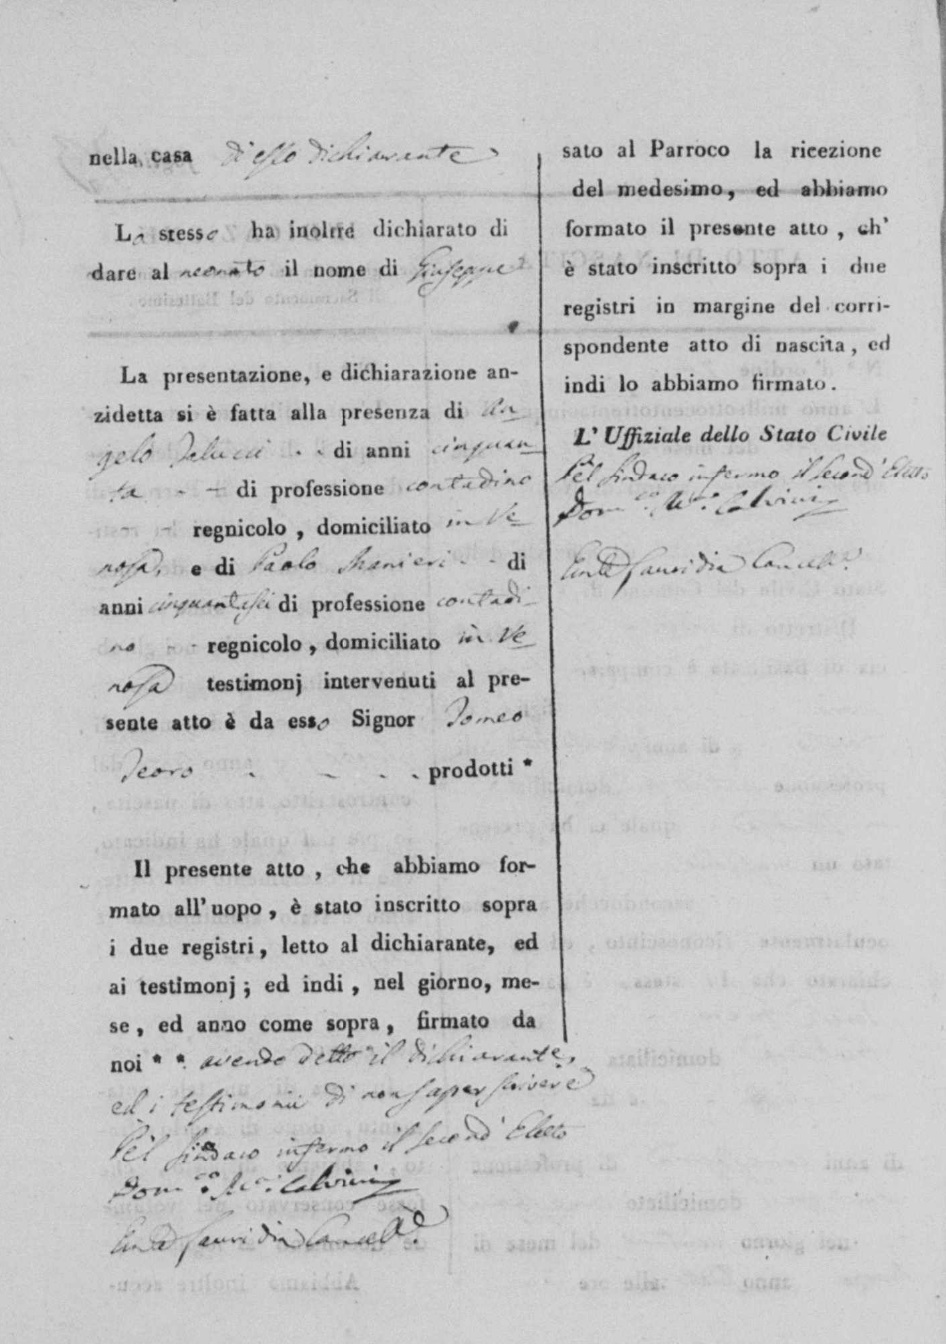 nella casa di esso dichiarante
Lo stesso ha inoltre dichiarato di
dare al neonato il nome di Giuseppe
La presentazione, e dichiarazione an-
zidetta si è fatta alla presenza di An-
gelo di anni cinquan-
ta di professione contadino
regnicolo, domiciliato in Ve-
nosa, e di Paolo Ranieri di
anni cinquantasei di professione contadi-
no regnicolo, domiciliato in Ve-
nosa testimonj intervenuti al pre-
sente atto è da esso Signor
prodotti *
Il presente atto, che abbiamo for-
mato all'uopo, è stato inscritto sopra
i due registri, letto al dichiarante, ed
ai testimonj; ed indi, nel giorno, me-
se, ed anno come sopra, firmato da
noi * * avendo detto il dichiarante,
ed i testimonii di non saper scrivere
Pel Sindaco infermo il second' Eletto
Dom.co Calvini
Cancell.e
sato al Parroco la ricezione
del medesimo, ed abbiamo
formato il presente atto, ch'
è stato inscritto sopra i due
registri in margine del corri-
spondente atto di nascita, ed
indi lo abbiamo firmato.
L'Uffiziale dello Stato Civile
Pel Sindaco infermo il second' Eletto
Dom.co Calvini
Cancell.e